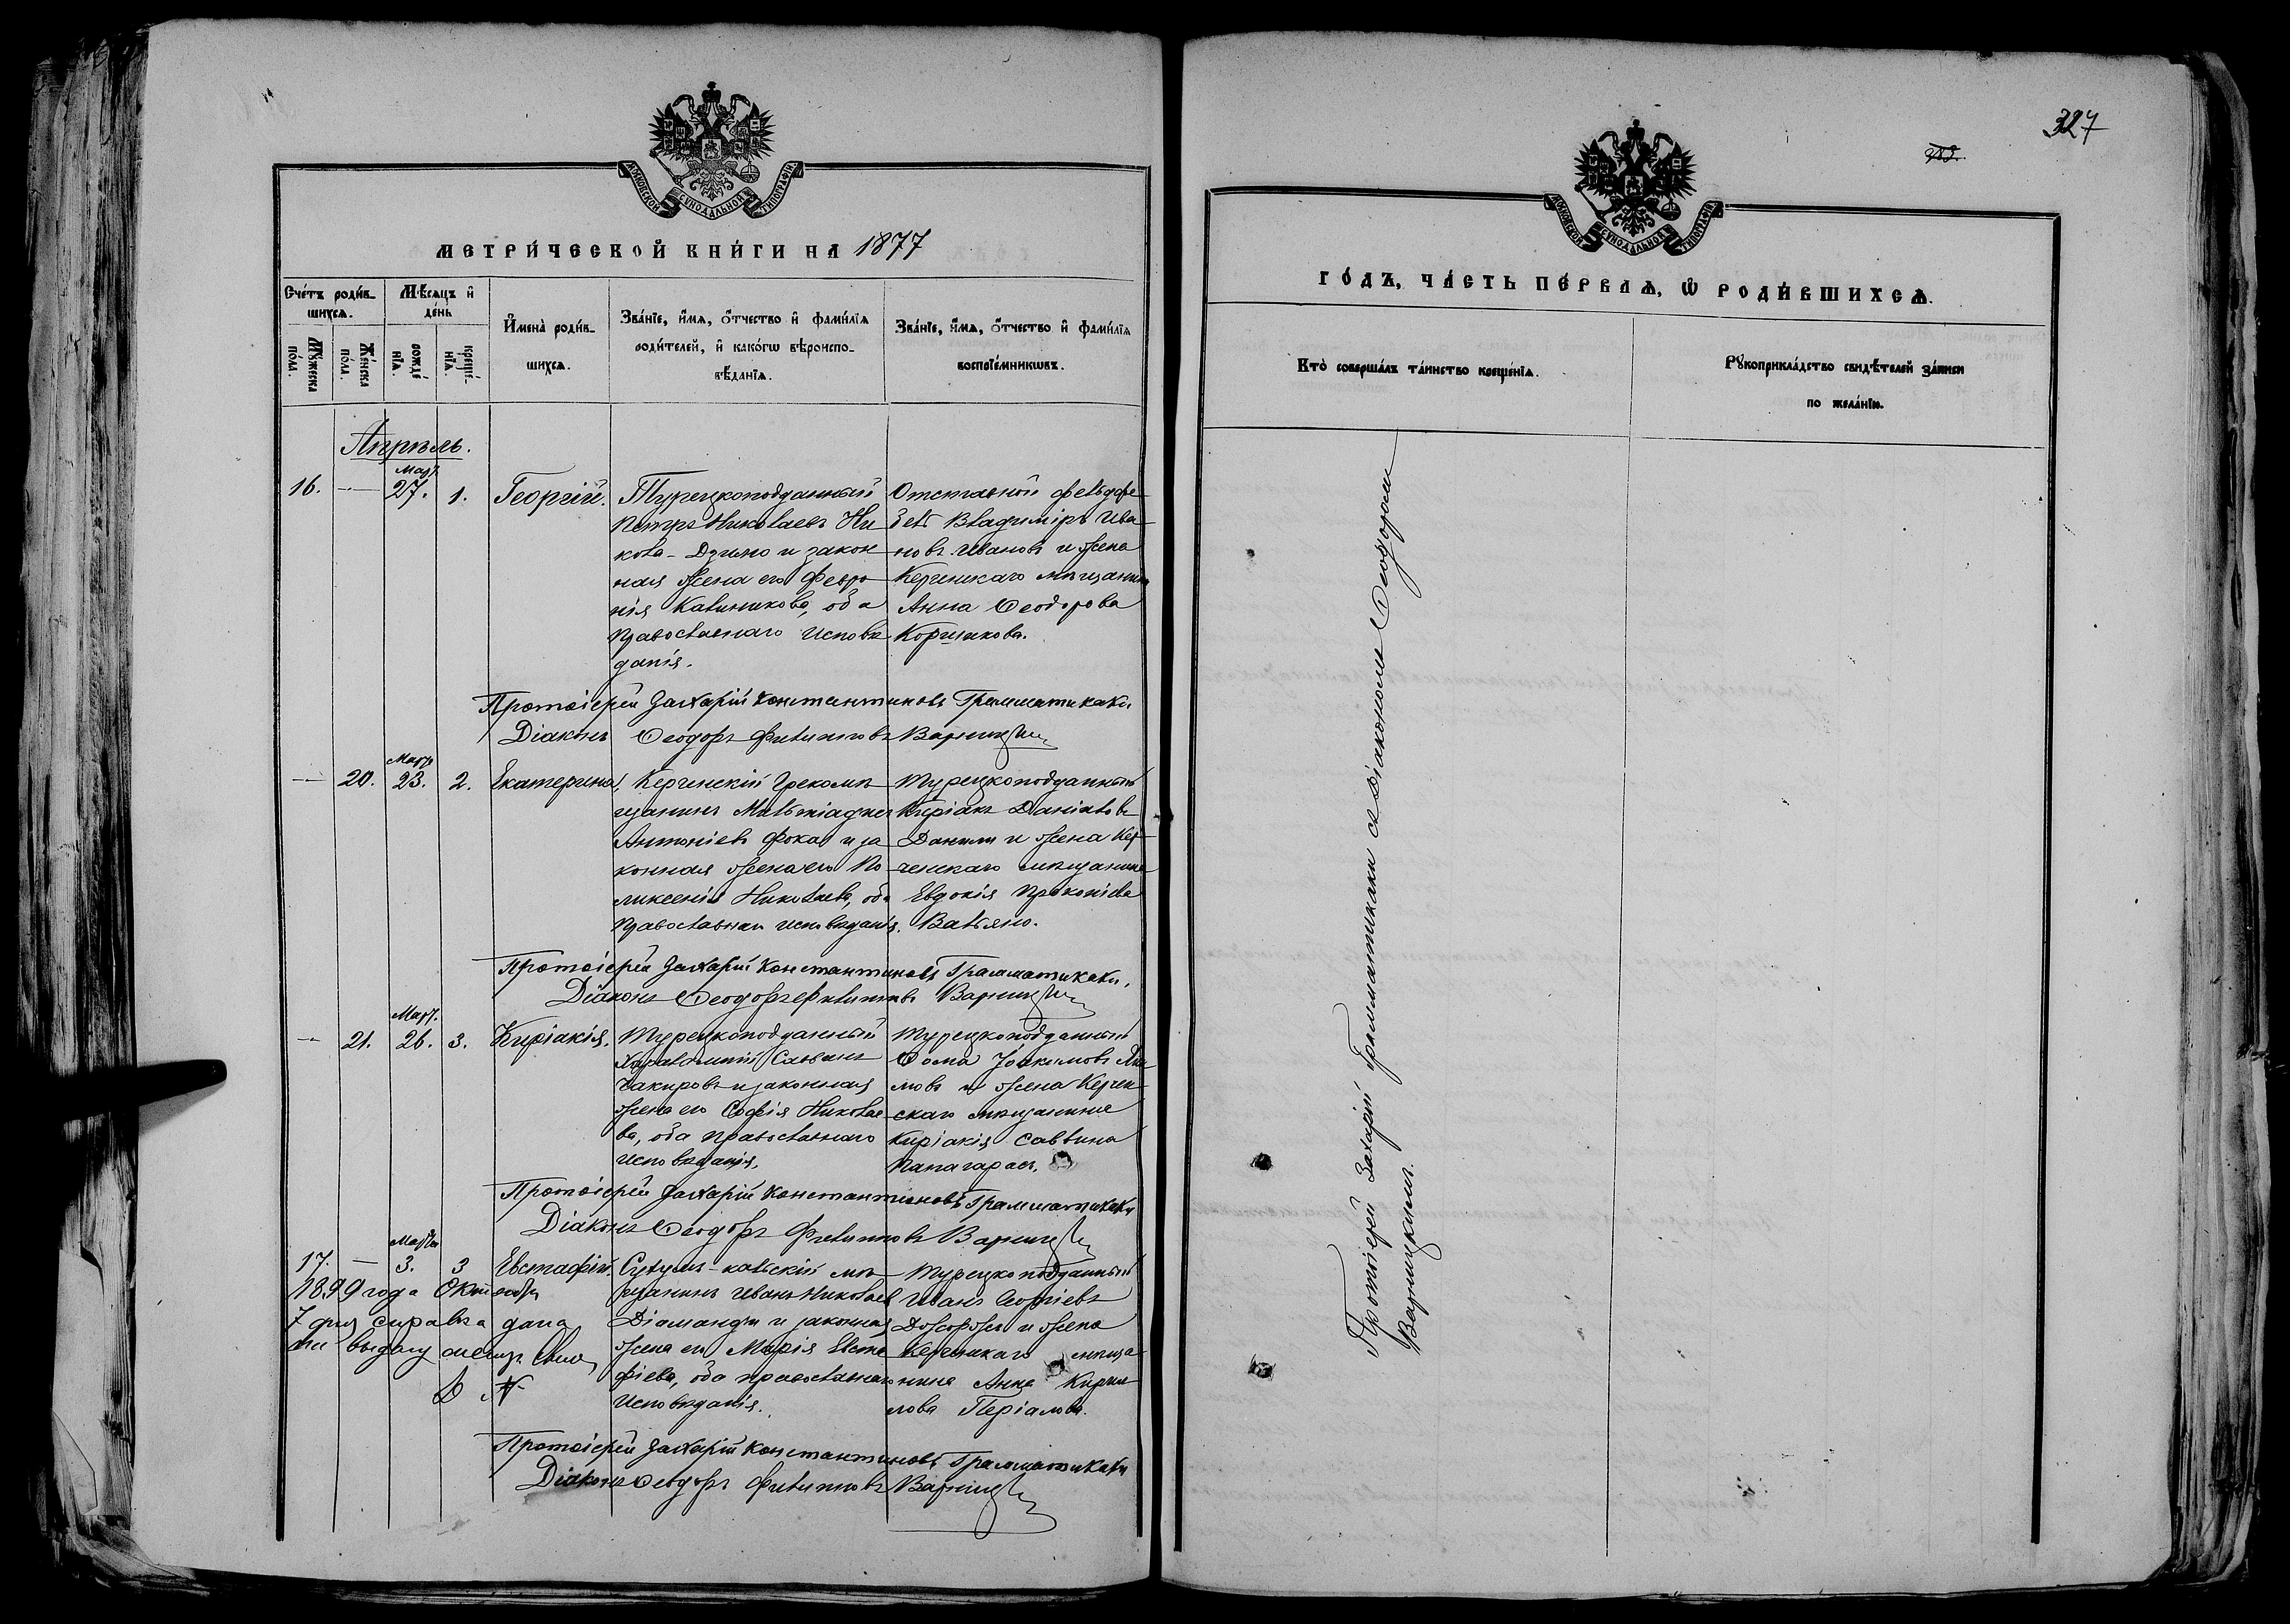 327
МОСКОВСКОЙ СѴНОДАЛЬНОЙ ТИПОГРАФІИ.
МЕТРИ́ЧЕСКОЙ КНИ́ГИ НА 1877
Сче́тъ роди́вшихсѧ.
Мѣ́сѧцъ и҆ де́нь
Мꙋ́жеска по́ла.
Же́нска по́ла.
рожде́нїѧ.
креще́нїѧ.
И҆мена̀ роди́вшихсѧ.
Зва́нїе, и҆́мѧ, ѻ҆́тчество и҆ фами́лїѧ
роди́телей, и҆ како́гѡ вѣроиспо-
вѣ́данїѧ.
Зва́нїе, и҆́мѧ, ѻ҆́тчество и҆ фами́лїѧ
воспрїе́мникѡвъ.
Апрѣль.
Март.
16. — 27. 1. Георгій.
Турецкоподданный
Петръ Николаевъ Ни
кола-Дзимо и закон
ная жена его Февро
нія Калиникова, оба
православнаго исповѣ
данія.
Отставной фельдфе
бель Владиміръ Ива
новъ Ивановъ и жена
Керченскаго мѣщанина
Анна Ѳеодорова
Протоіерей Захарій Константиновъ Грамматикаки
Діаконъ Ѳеодоръ Филипповъ Варницкій
Март
— 20. 23. 2. Екатерина,
Керченскій грекомѣ
щанинъ Мильтіадъ
Антоніевъ Фока и за
конная жена его По
ликсенія Николаева, оба
православнаго исповѣданія.
Турецкоподданный
Киріакъ Даніиловъ
и жена Кер
ченскаго мѣщанина
Евдокія Прокопіева
Вальяно.
Протоіерей Захарій Константиновъ Грамматикаки.
Діаконъ Ѳеодоръ Филипповъ Варницкій
Март.
— 21. 26. 3. Киріакія.
Турецкоподданный
Харалампій
Чакировъ и законная
жена его Софія Николае
ва, оба православнаго
исповѣданія.
Турецкоподданный
Ѳома Іоакимовъ
и жена Керчен
скаго мѣщанина
Киріакія Саввина
Протоіерей Захарій Константиновъ Грамматикаки
Діаконъ Ѳеодоръ Филипповъ Варницкій
Марта
17. — 3. 3 Евстафій.
Сухумъ-кальскій мѣ
щанинъ Иванъ Николаев
Діаманди и законная
жена его Марія Евста
фіева, оба православнаго
исповѣданія.
Турецкоподданный
Иванъ Георгіевъ
и жена
Керченскаго мѣща
нина Анна Кирил
лова
1899 года Октября
7 дня справка дана
на выдачу
№
Протоіерей Захарій Константиновъ Грамматикаки
Діаконъ Ѳеодоръ Филипповъ Варницкій
МОСКОВСКОЙ СѴНОДАЛЬНОЙ ТИПОГРАФІИ.
ГО́ДЪ, ЧА́СТЬ ПЕ́РВАѦ, Ѡ҆ РОДИ́ВШИХСѦ.
Кто̀ соверша́лъ та́инство креще́нїѧ.
Рꙋкоприкла́дство свидѣ́телей за́писи
по жела́нїю.
Протоіерей Захарій Грамматикаки съ діакономъ Ѳеодоромъ
Варницкимъ.